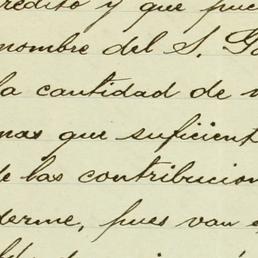 redito y que pue
nombre del S. Go
la cantidad de
mas que suficient
e las contribucion
derme, pues van e